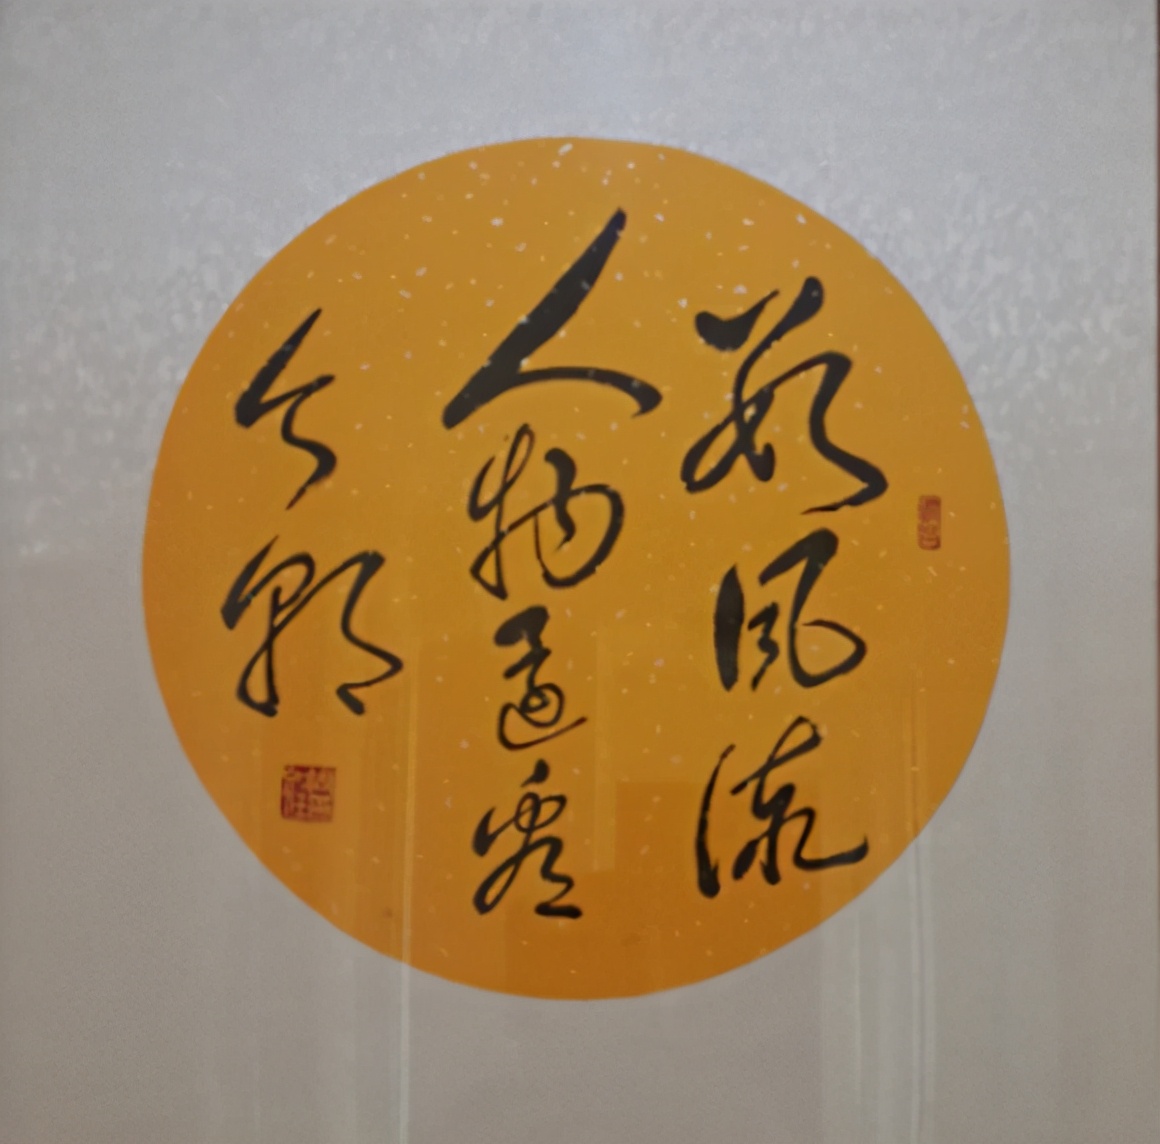 数风流
人物还看
今朝